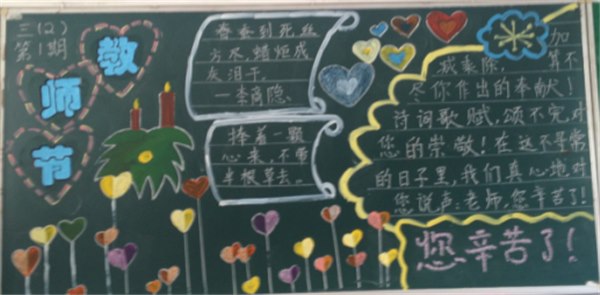 三(2)
第1期
教
师
节
春蚕到死丝
方尽,蜡炬成
灰泪干。
—李商隐。
捧着一颗
心来,不带
半根草去。
加
减乘除,算不
尽你作出的奉献!
诗词歌赋,颂不完对
您的崇敬!在这不寻常
的日子里,我们真心地对
您说声:老师,您辛苦了!
您辛苦了!